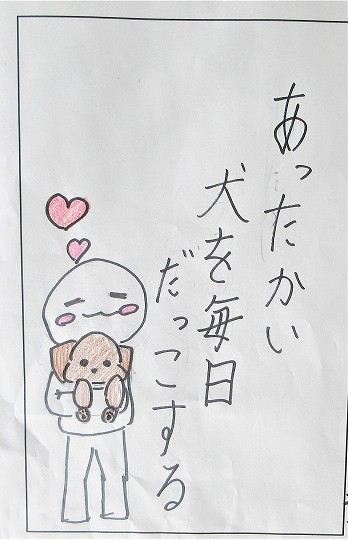 あったかい
犬を毎日
だっこする